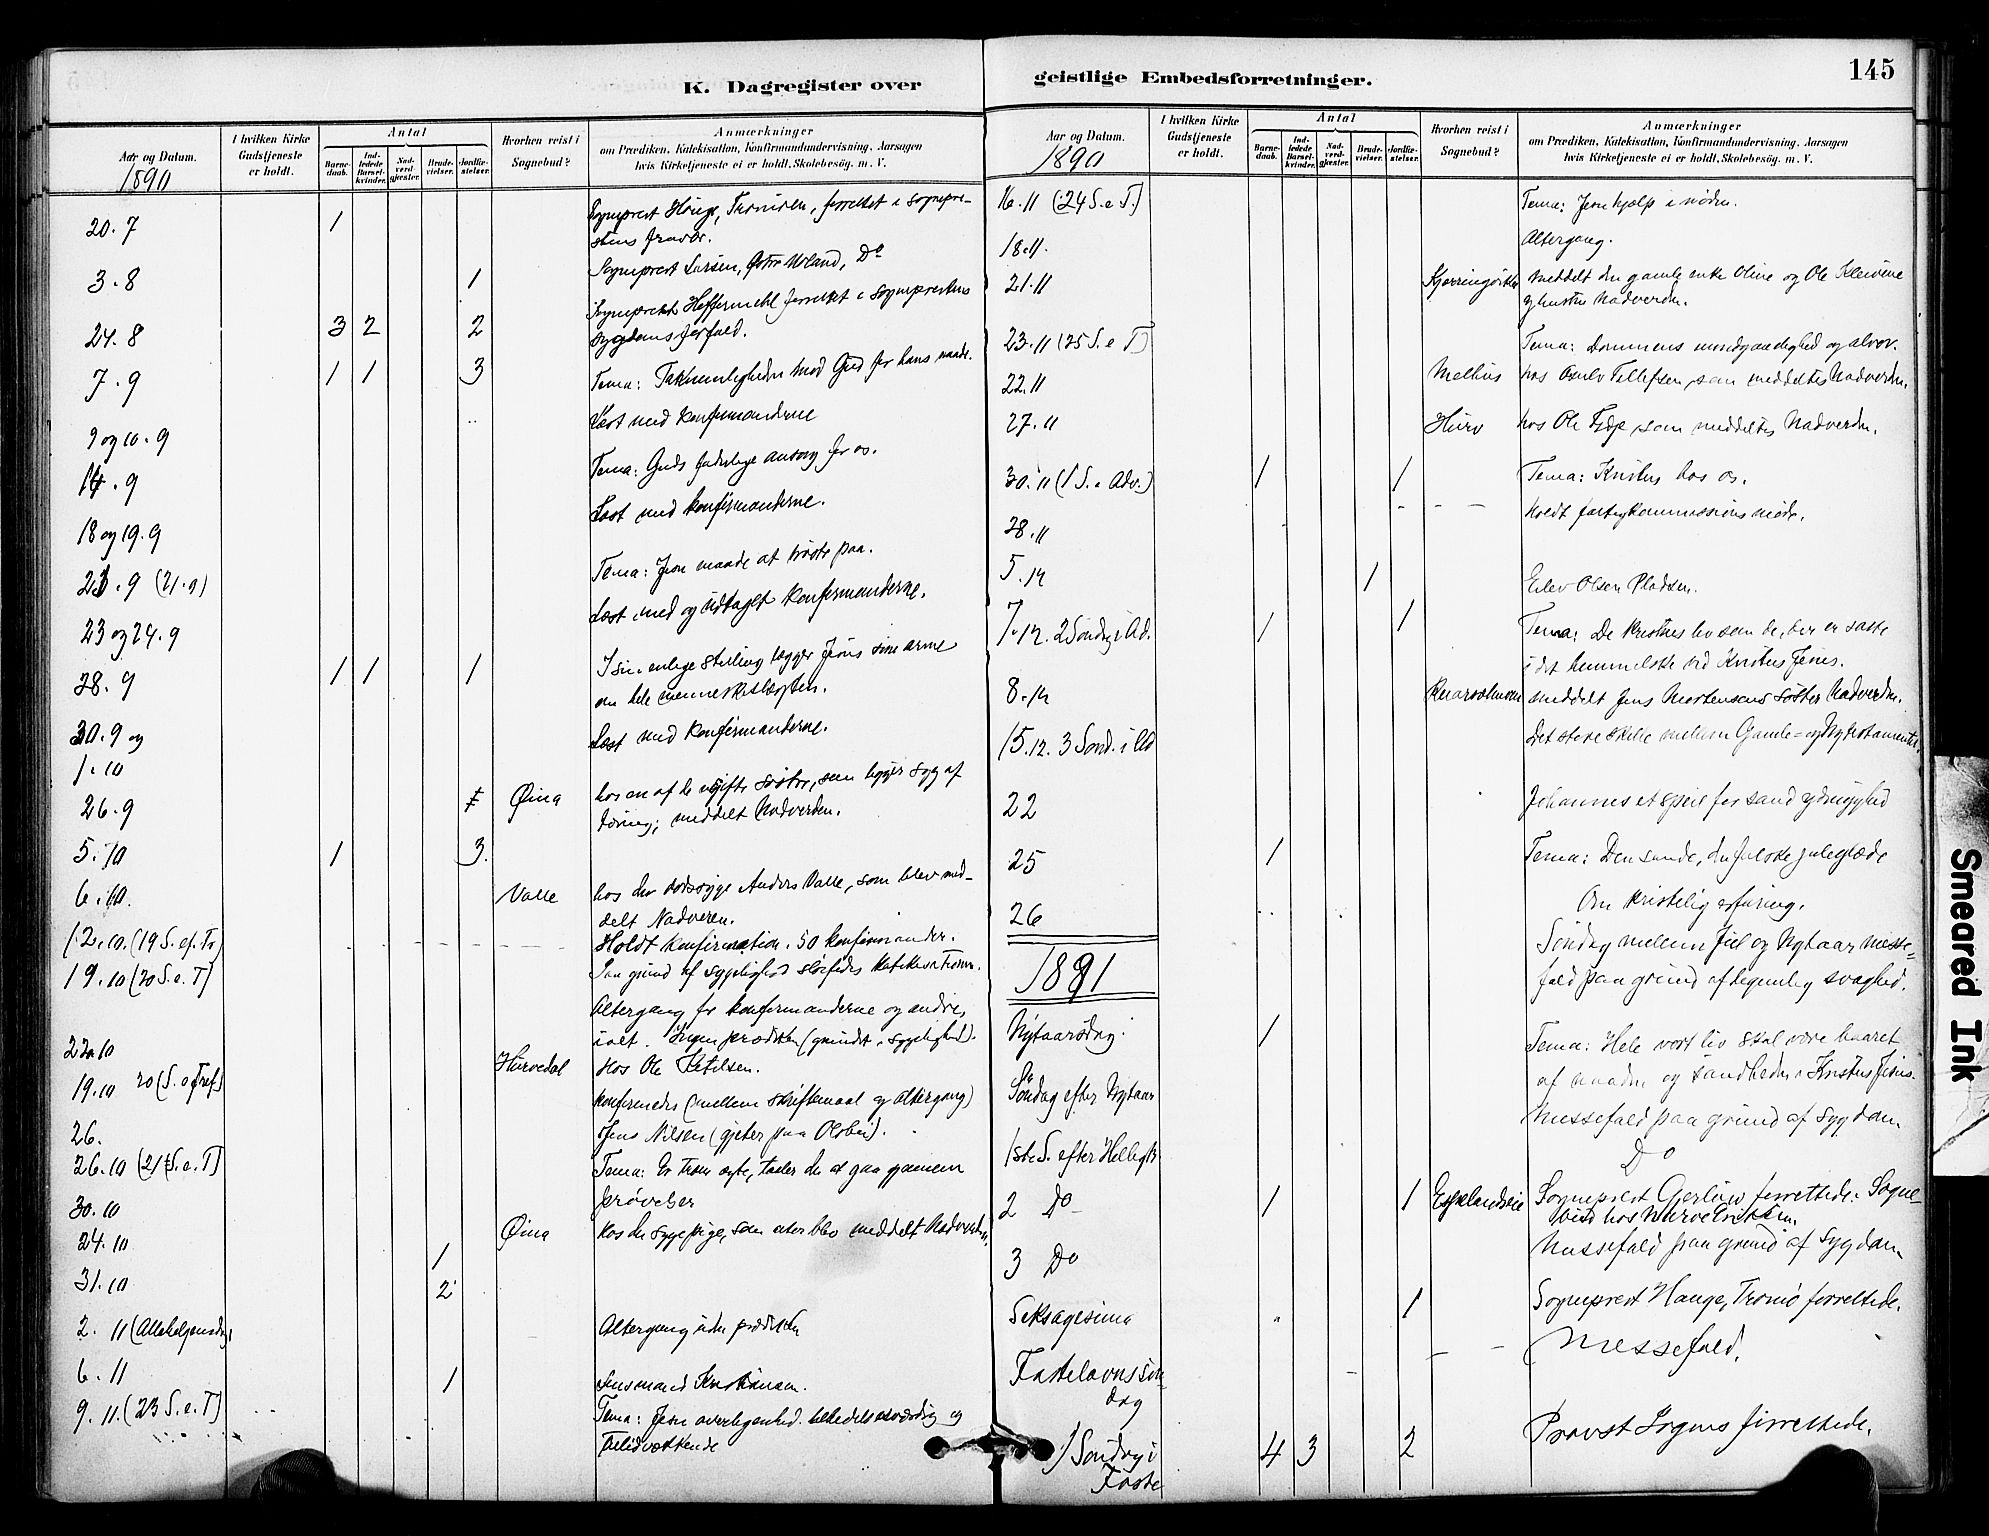 K. Dagregister over
Aar og Datum.
1890
I hvilken Kirke Gudstjeneste er holdt.
Antal
Barnedaab.
Indledede Barselkvinder.
Nadverdgjester.
Brudevielser.
Jordfæstelser.
Hvorhen reist i Sognebud?
Anmærkninger
om Prædiken, Katekisation, Konfirmandundervisning. Aarsagen
hvis Kirketjeneste ei er holdt. Skolebesög. m. V.
20.7 1 Sogneprest Hauge, forrettet i sognepre-
stens fravær.
3.8 1 Sogneprest Larsen, Do
24.8 3 2 2 Sogneprest Heffermehl forrettet i sogneprestens
sygdoms forfald.
7.9 1 1 3 Tema: Taknemligheden mod Gud for hans naade.
9 og 10.9 Læst med konfirmanderne
14.9 Tema: Guds faderlige omsorg for os.
18 og 19.9 Læst med konfirmanderne.
21.9 (21.9) Tema: Jesu maade at trøste paa.
23 og 24.9 Læst med og udtaget konfirmanderne.
28.9 1 1 1 I sin enlige stilling lægger Jesus sine arme
om hele menneskeslægten.
30.9 og Læst med konfirmanderne.
1.10
26.9 Øina hos en af de ugifte søstre, som ligger syg af
tæring; meddelt Nadverden.
5.10 1 3.
6.10. Valle hos den dødssyge Anders Valle, som blev med-
delt Nadveren.
12.10. (19 S. ef. Tr) Holdt konfirmation. 50 konfirmander.
19.10 (20 S. e. T) Paa grund af sygelighed sløifedes katekisationen.
Altergang for konfirmanderne og andre,
ialt. Ingen prædiken (grundet i sygelighed).
22.10 Hurvedal Hos Ole Ketilsen.
19.10 20 (S. e Tref) konfirmedes (mellem skriftemaal og Altergang)
26. Jens Nilsen (gjeter paa Olsbu).
26.10 (21 S. e. T) Tema: Er troen ægte, taaler den at gaa gjennem
30.10 prøvelser
24.10 Øina Hos den syge pige, som atter blev meddelt Nadverden.
1
31.10 2
2. 11 (Allehelgensdag) Altergang uden prædiken
6. 11 1 Lensmand Kristiansen.
9. 11. (23 S. e. T) Tema: Jesu overlegenhed tilbedelsesværdig og
tillidvækkende
geistlige Embedsforretninger.
145
Aar og Datum.
1890
I hvilken Kirke Gudstjeneste er holdt.
Antal
Barnedaab.
Indledede Barselkvinder.
Nadverdgjester.
Brudevielser.
Jordfæstelser.
Hvorhen reist i Sognebud?
Anmærkninger
om Prædiken, Katekisation, Konfirmandundervisning. Aarsagen
hvis Kirketjeneste ei er holdt. Skolebesög. m. V.
16.11 (24 S. e T.) Tema: Jesu hjælp i nøden.
18.11. Altergang.
21.11 meddelt den gamle enke Oline og Ole
hustru Nadverden.
23.11 (25 S. e T) Tema: Dommens uundgaaelighed og alvor.
22.11 Mellius hos Tellefsen, som meddeltes Nadverden.
27.11 Hurv hos Ole som meddeltes Nadverden.
30.11 (1 S. i Adv.) 1 1 Tema: Kristus hos os.
28.11 Holdt møde.
5.12 1 Eilev Olsen Pladsen.
7.12. 2 Søndag i Ad. 1 1 Tema: De kristnes liv som de, der er satte
i det himmelske ved Kristus Jesus.
8.12 meddelt Jens Mortensens søster Nadverden.
15.12. 3 Sønd. i Ad Det store skille mellem Gamle- og Nytestamentet.
22 Johannes et speil for sand ydmyghed
25 1 Tema: Den sande, den falske juleglæde
26 Om kristelig erfaring.
Søndag mellem Jul og Nytaar messe-
fald paa grund af legemlig svaghed.
1891
Nytaarsdag. 1 Tema: Hele vort liv skal være baaret
af naaden og sandheden i Kristus Jesus.
Søndag efter Nytaar Messefald paa grund af sygdom.
1ste S. efter Helligtr Do
2 Do 1 1 Espelandseie Sogneprest forrettede. Sogne-
bud hos
3 Do Messefald paa grund af sygdom
Seksagesima 1 Sogneprest Hauge, Tromø forrettede.
Fastelavnssøn- Messefald.
dag
1 Søndag i 4 3 2 Provst forrettede.
Faste
Smeared Ink